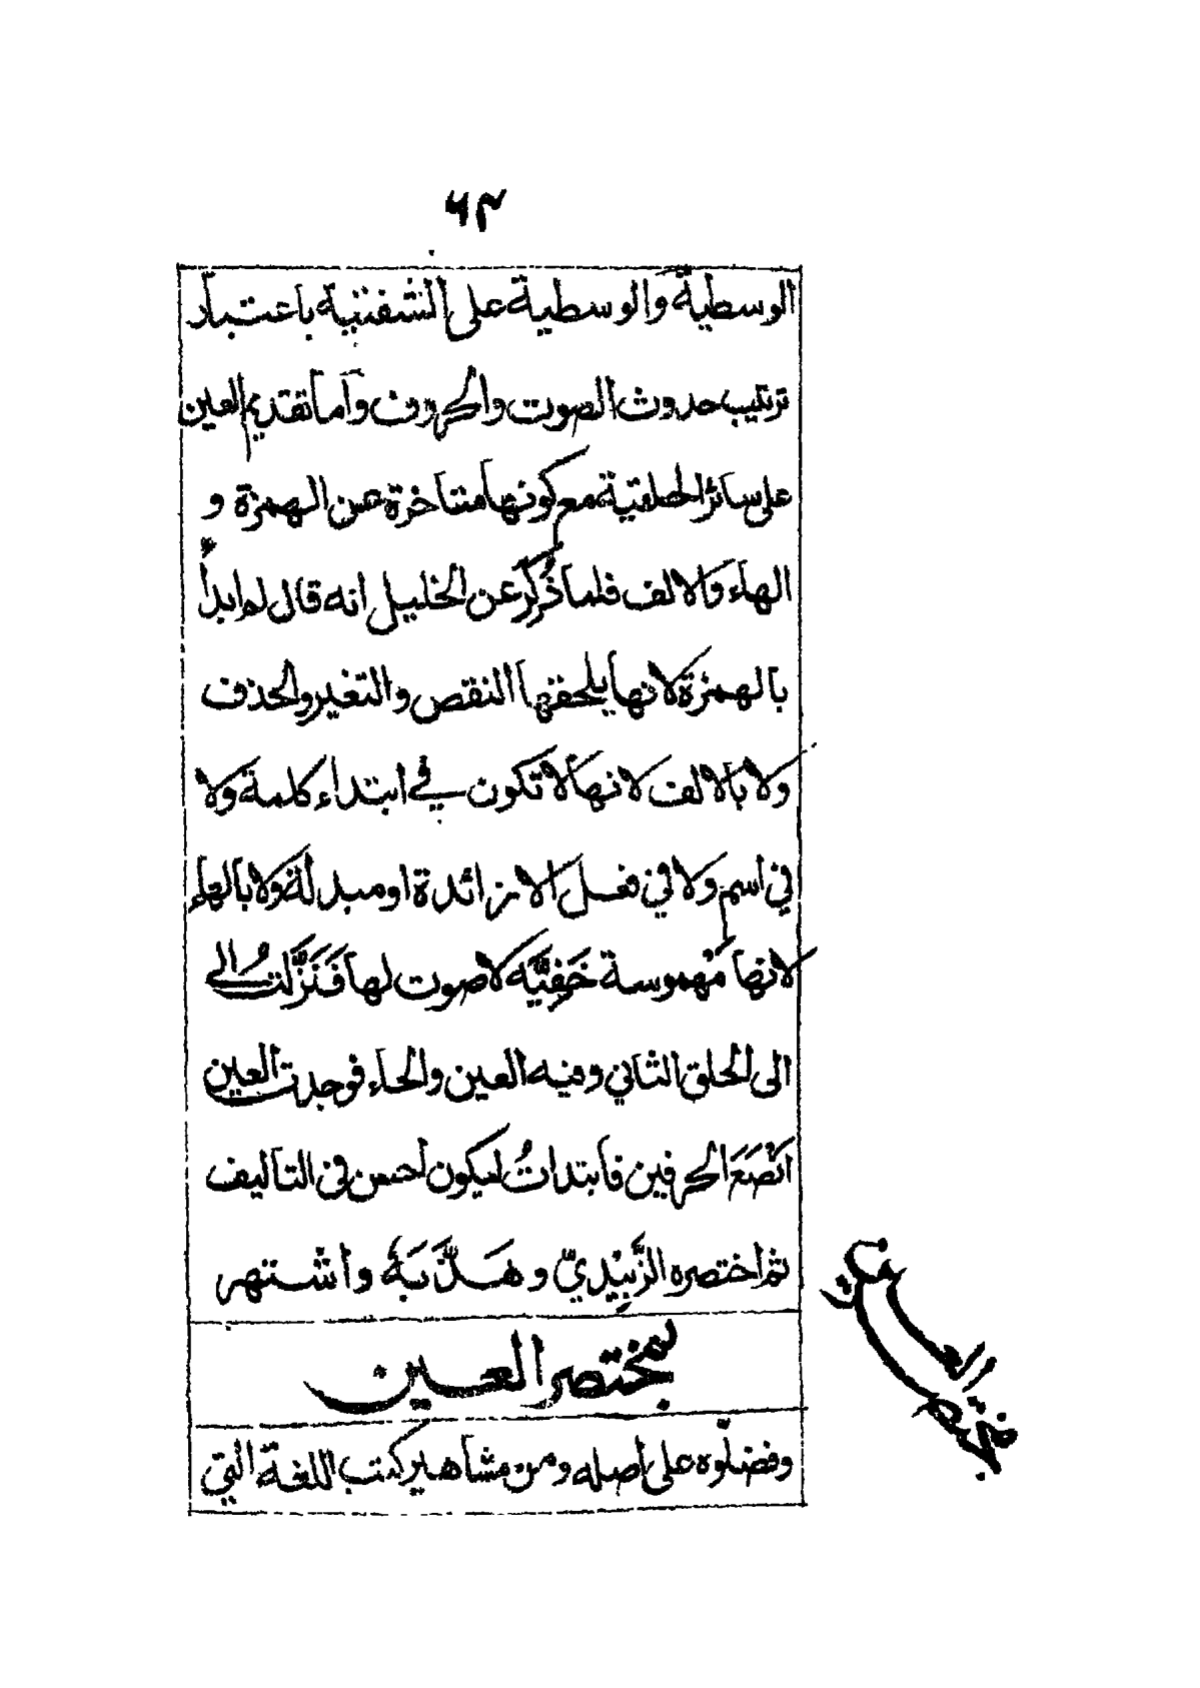 ٦٣
الوسطية والوسطية على الشفتية باعتبار
ترتيب حدوث الصوت والحروف وأما تقديم العين
على سائر الحلقية مع كونها متاخرة عن الهمزة و
الهاء والالف فلما ذُكِرَ عن الخليل انه قال لم ابدأ
بالهمزة لانها يلحقها النقص والتغير والحذف
ولا بالالف لانها لا تكون في ابتداء كلمة ولا
في اسم ولا في فعل الا زائدة او مبدلة ولا بالهاء
لانها مَهْموسة خَفِيَّه لا صوت لها فَنَزَّلتُ الى
الى الحلق الثاني وفيه العين والحاء فوجدت العين
انْصَعَ الحرفين فابتداتُ ليكون احسن في التاليف
ثم اختصره الزُّبيْديّ وهَذَّبَهُ واشتهر
بمختصر العين
وفضلّوه على اصله ومن مشاهير كتب اللغة التي
مختصر العين